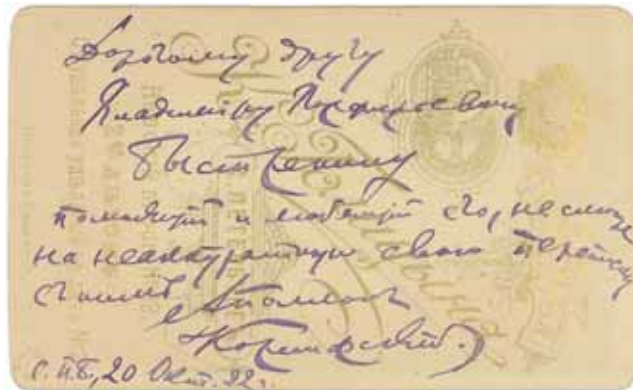 Дорогому другу
Владимiру Порфирьевичу
Быстренину
помнящiй и любящiй его, несмотря
на неаккуратную свою переписку
съ нимъ Аполлонъ
Коринфскiй.
С.П.Б., 20 Окт. 92 г.